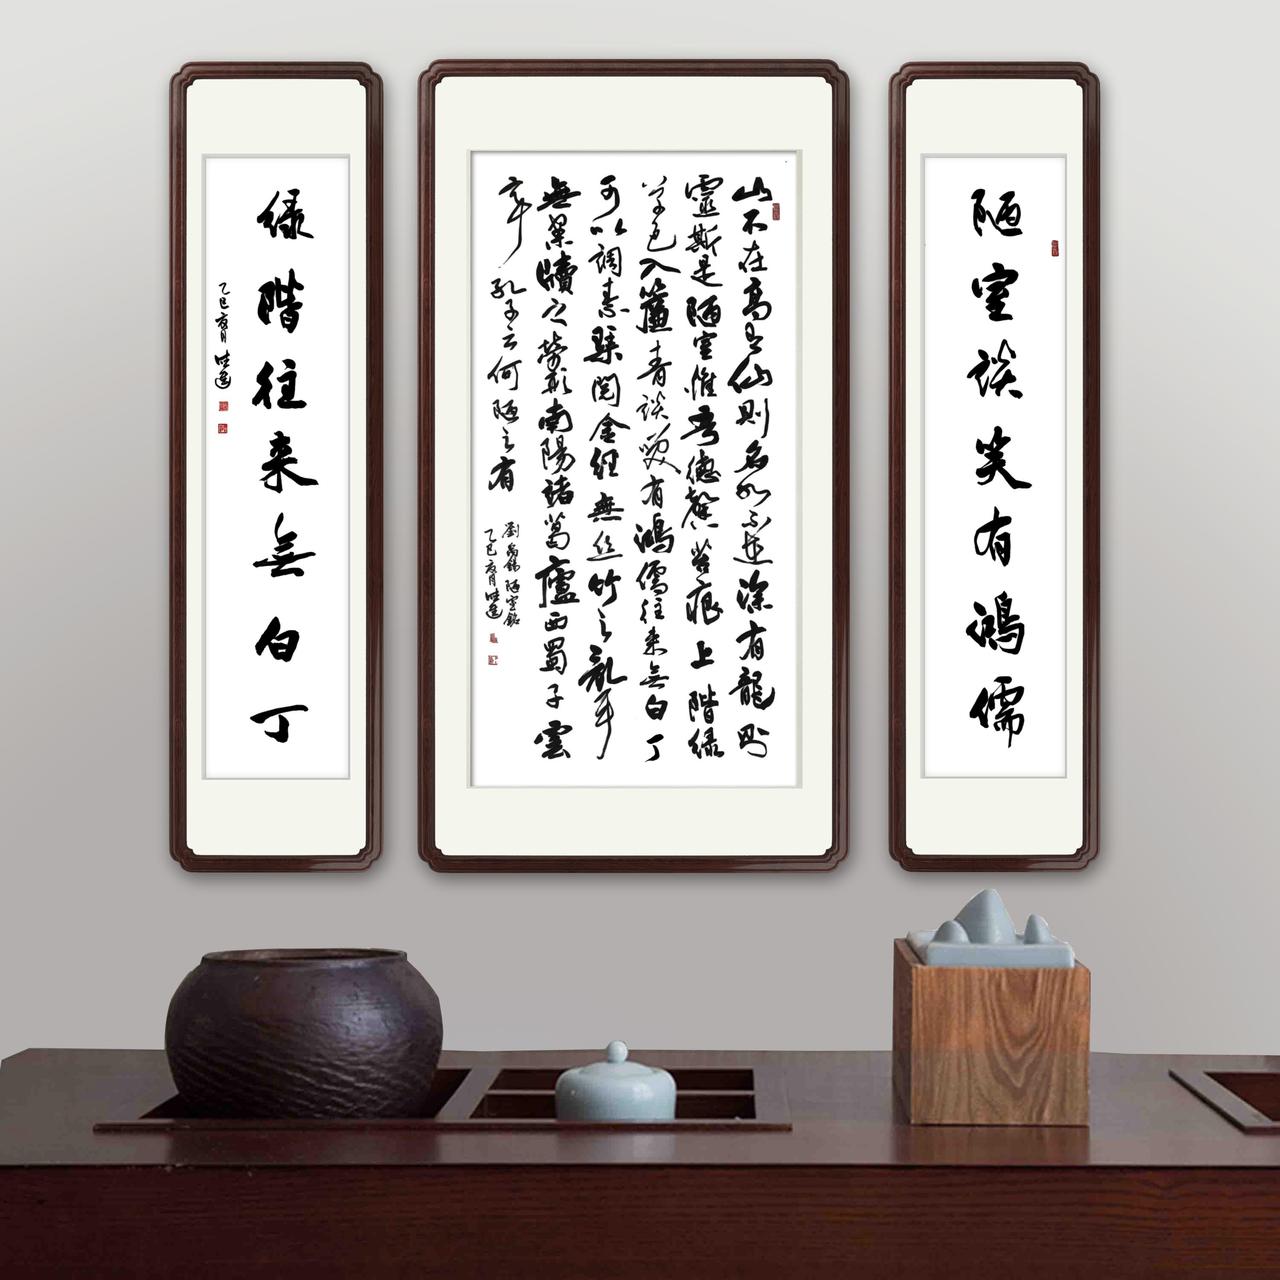 陋室談笑有鴻儒
山不在高有仙則名水不在深有龍則
靈斯是陋室惟吾德馨苔痕上階緑
草色入簾青談笑有鴻儒往来無白丁
可以調素琴閲金經無丝竹之亂耳
無案牘之勞形南陽諸葛廬西蜀子雲
亭孔子云何陋之有
劉禹錫陋室銘
乙巳夏月
緑階往来無白丁
乙巳夏月